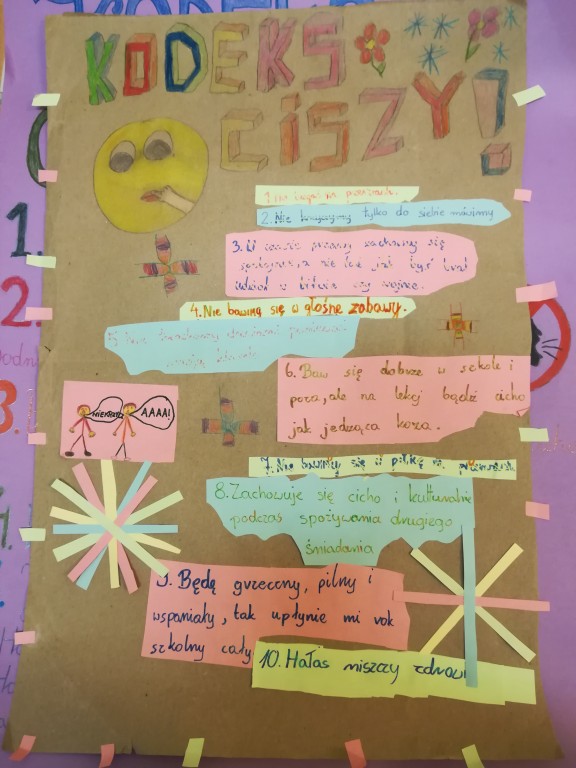 KODEKS
CISZY!
1.
2. Nie krzyczymy tylko do siebie mówimy
3. W czasie przerwy zachowuj się
spokojnie, a nie tak jak byś brał
udział w bitwie czy wojnie.
4. Nie bawimy się w głośne zabawy.
5. Nie trzaskamy drzwiami ponieważ
6. Baw się dobrze w szkole i
poza, ale na lekcj bądź cicho
jak jedząca koza.
NIEKRZYCZ
AAAA!
7. Nie bawimy się w piłkę na przerwach
8. Zachowuje się cicho i kulturalnie
podczas spożywania drugiego
śniadania
9. Będę grzeczny, pilny i
wspaniały, tak upłynie mi rok
szkolny cały
10. Hałas niszczy zdrowie
1.
2.
3.